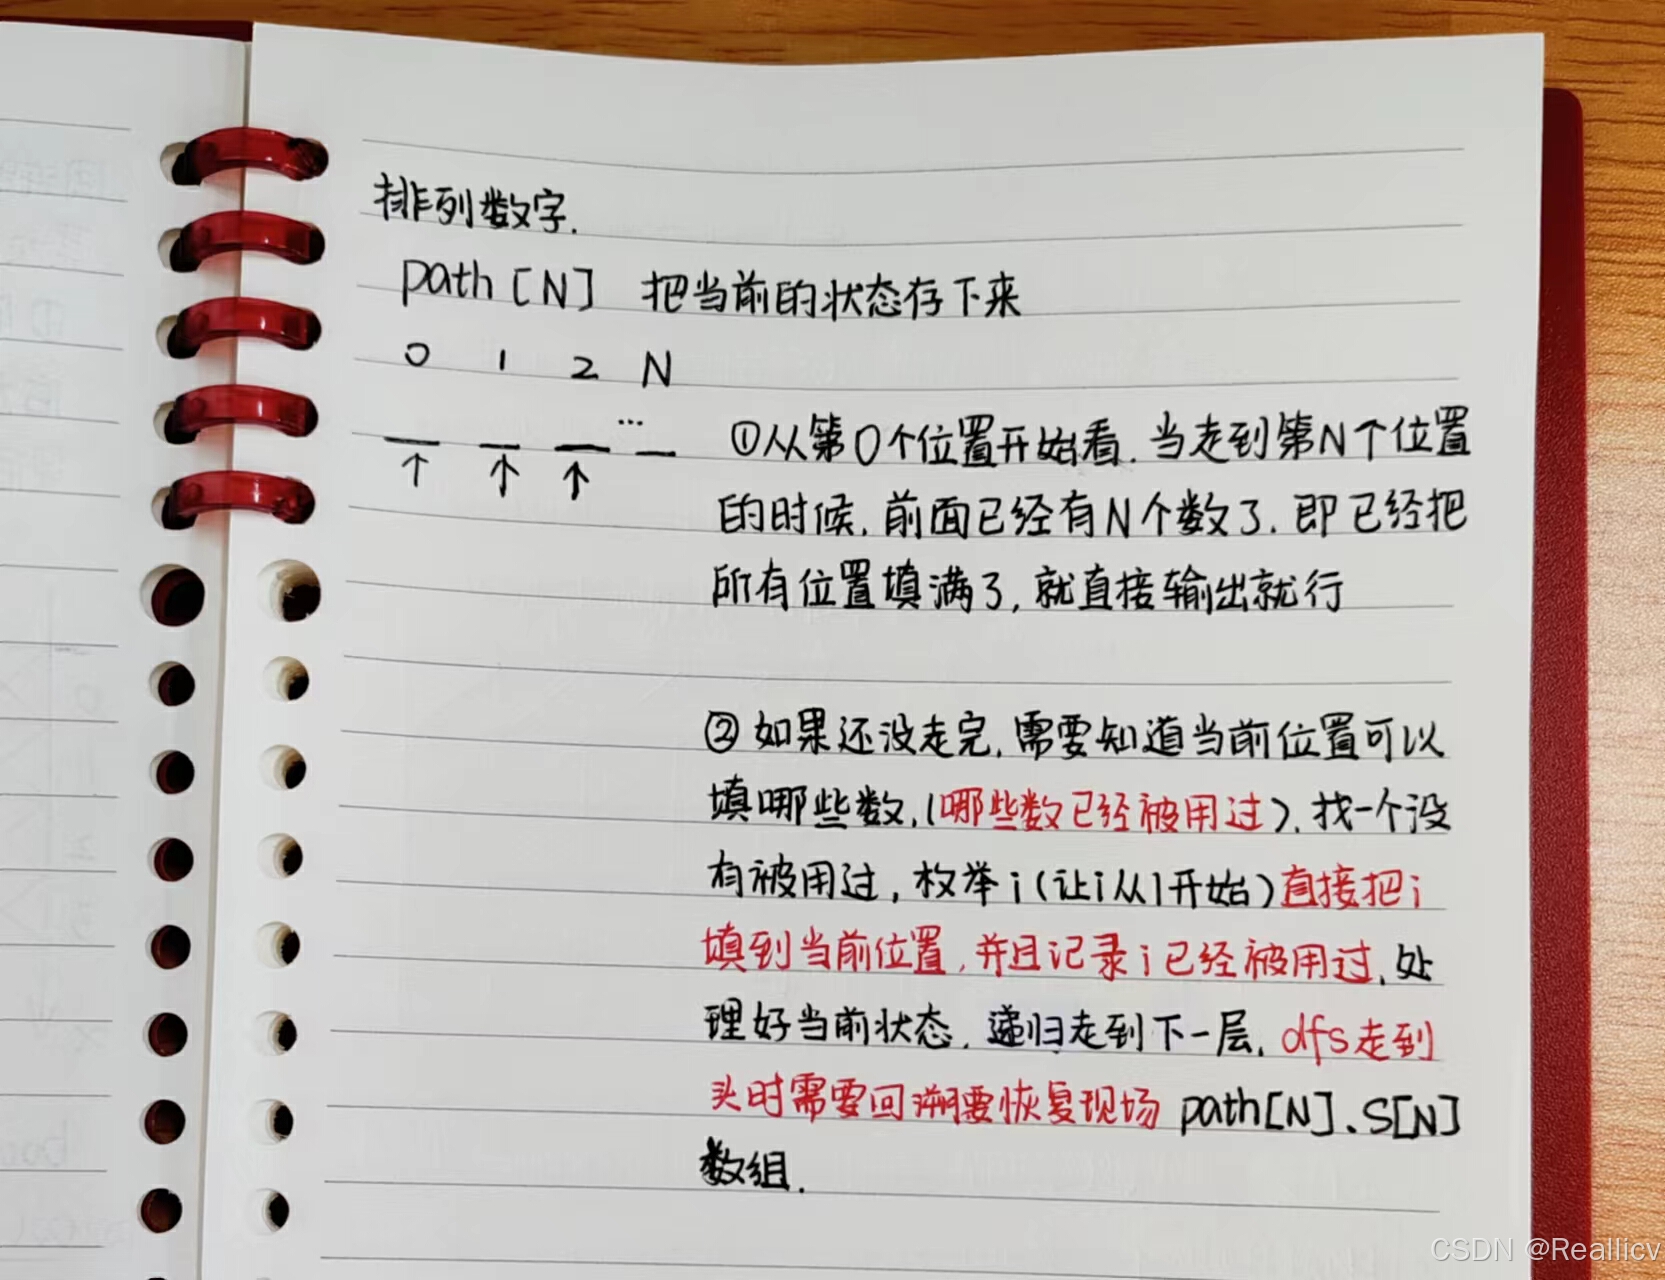 排列数字.
path [N] 把当前的状态存下来
0 1 2 N
...
①从第0个位置开始看.当走到第N个位置
的时候,前面已经有N个数了.即已经把
所有位置填满了,就直接输出就行
②如果还没走完,需要知道当前位置可以
填哪些数,(哪些数已经被用过).找一个没
有被用过,枚举i(让i从1开始)直接把i
填到当前位置,并且记录i已经被用过,处
理好当前状态,递归走到下一层,dfs走到
头时需要回溯要恢复现场 path[N]、S[N]
数组.
CSDN @Reallicv